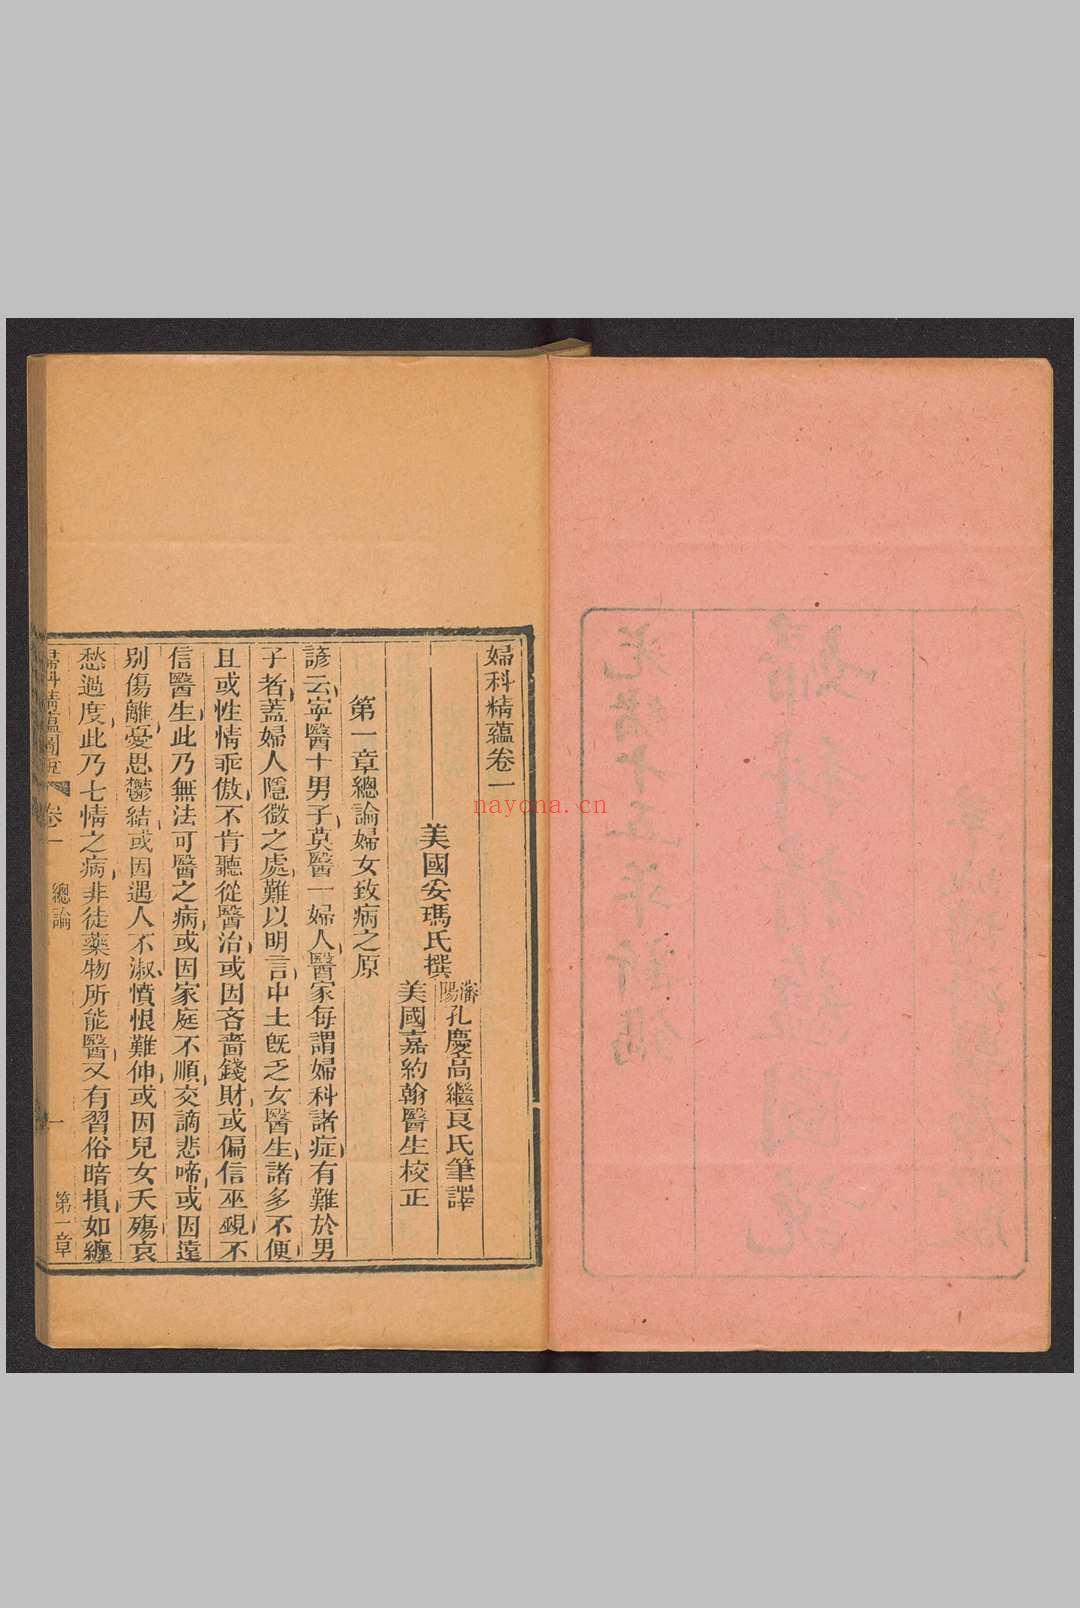 光緒十五年新鐫
婦科精蘊圖說
婦科精蘊卷一
美國妥瑪氏撰
瀋陽孔慶高繼良氏筆譯
美國嘉約翰醫生校正
第一章總論婦女致病之原
諺云寧醫十男子莫醫一婦人醫家每謂婦科諸症有難於男
子者蓋婦人隱微之處難以明言中土既乏女醫生諸多不便
且或性情乖傲不肯聽從醫治或因吝嗇錢財或偏信巫覡不
信醫生此乃無法可醫之病或因家庭不順交謫悲啼或因遠
別傷離憂思鬱結或因遇人不淑憤恨難伸或因兒女夭殤哀
愁過度此乃七情之病非徒藥物所能醫又有習俗暗損如纏
婦科精蘊圖說 卷一 總論 一 第一章
nayona.cn